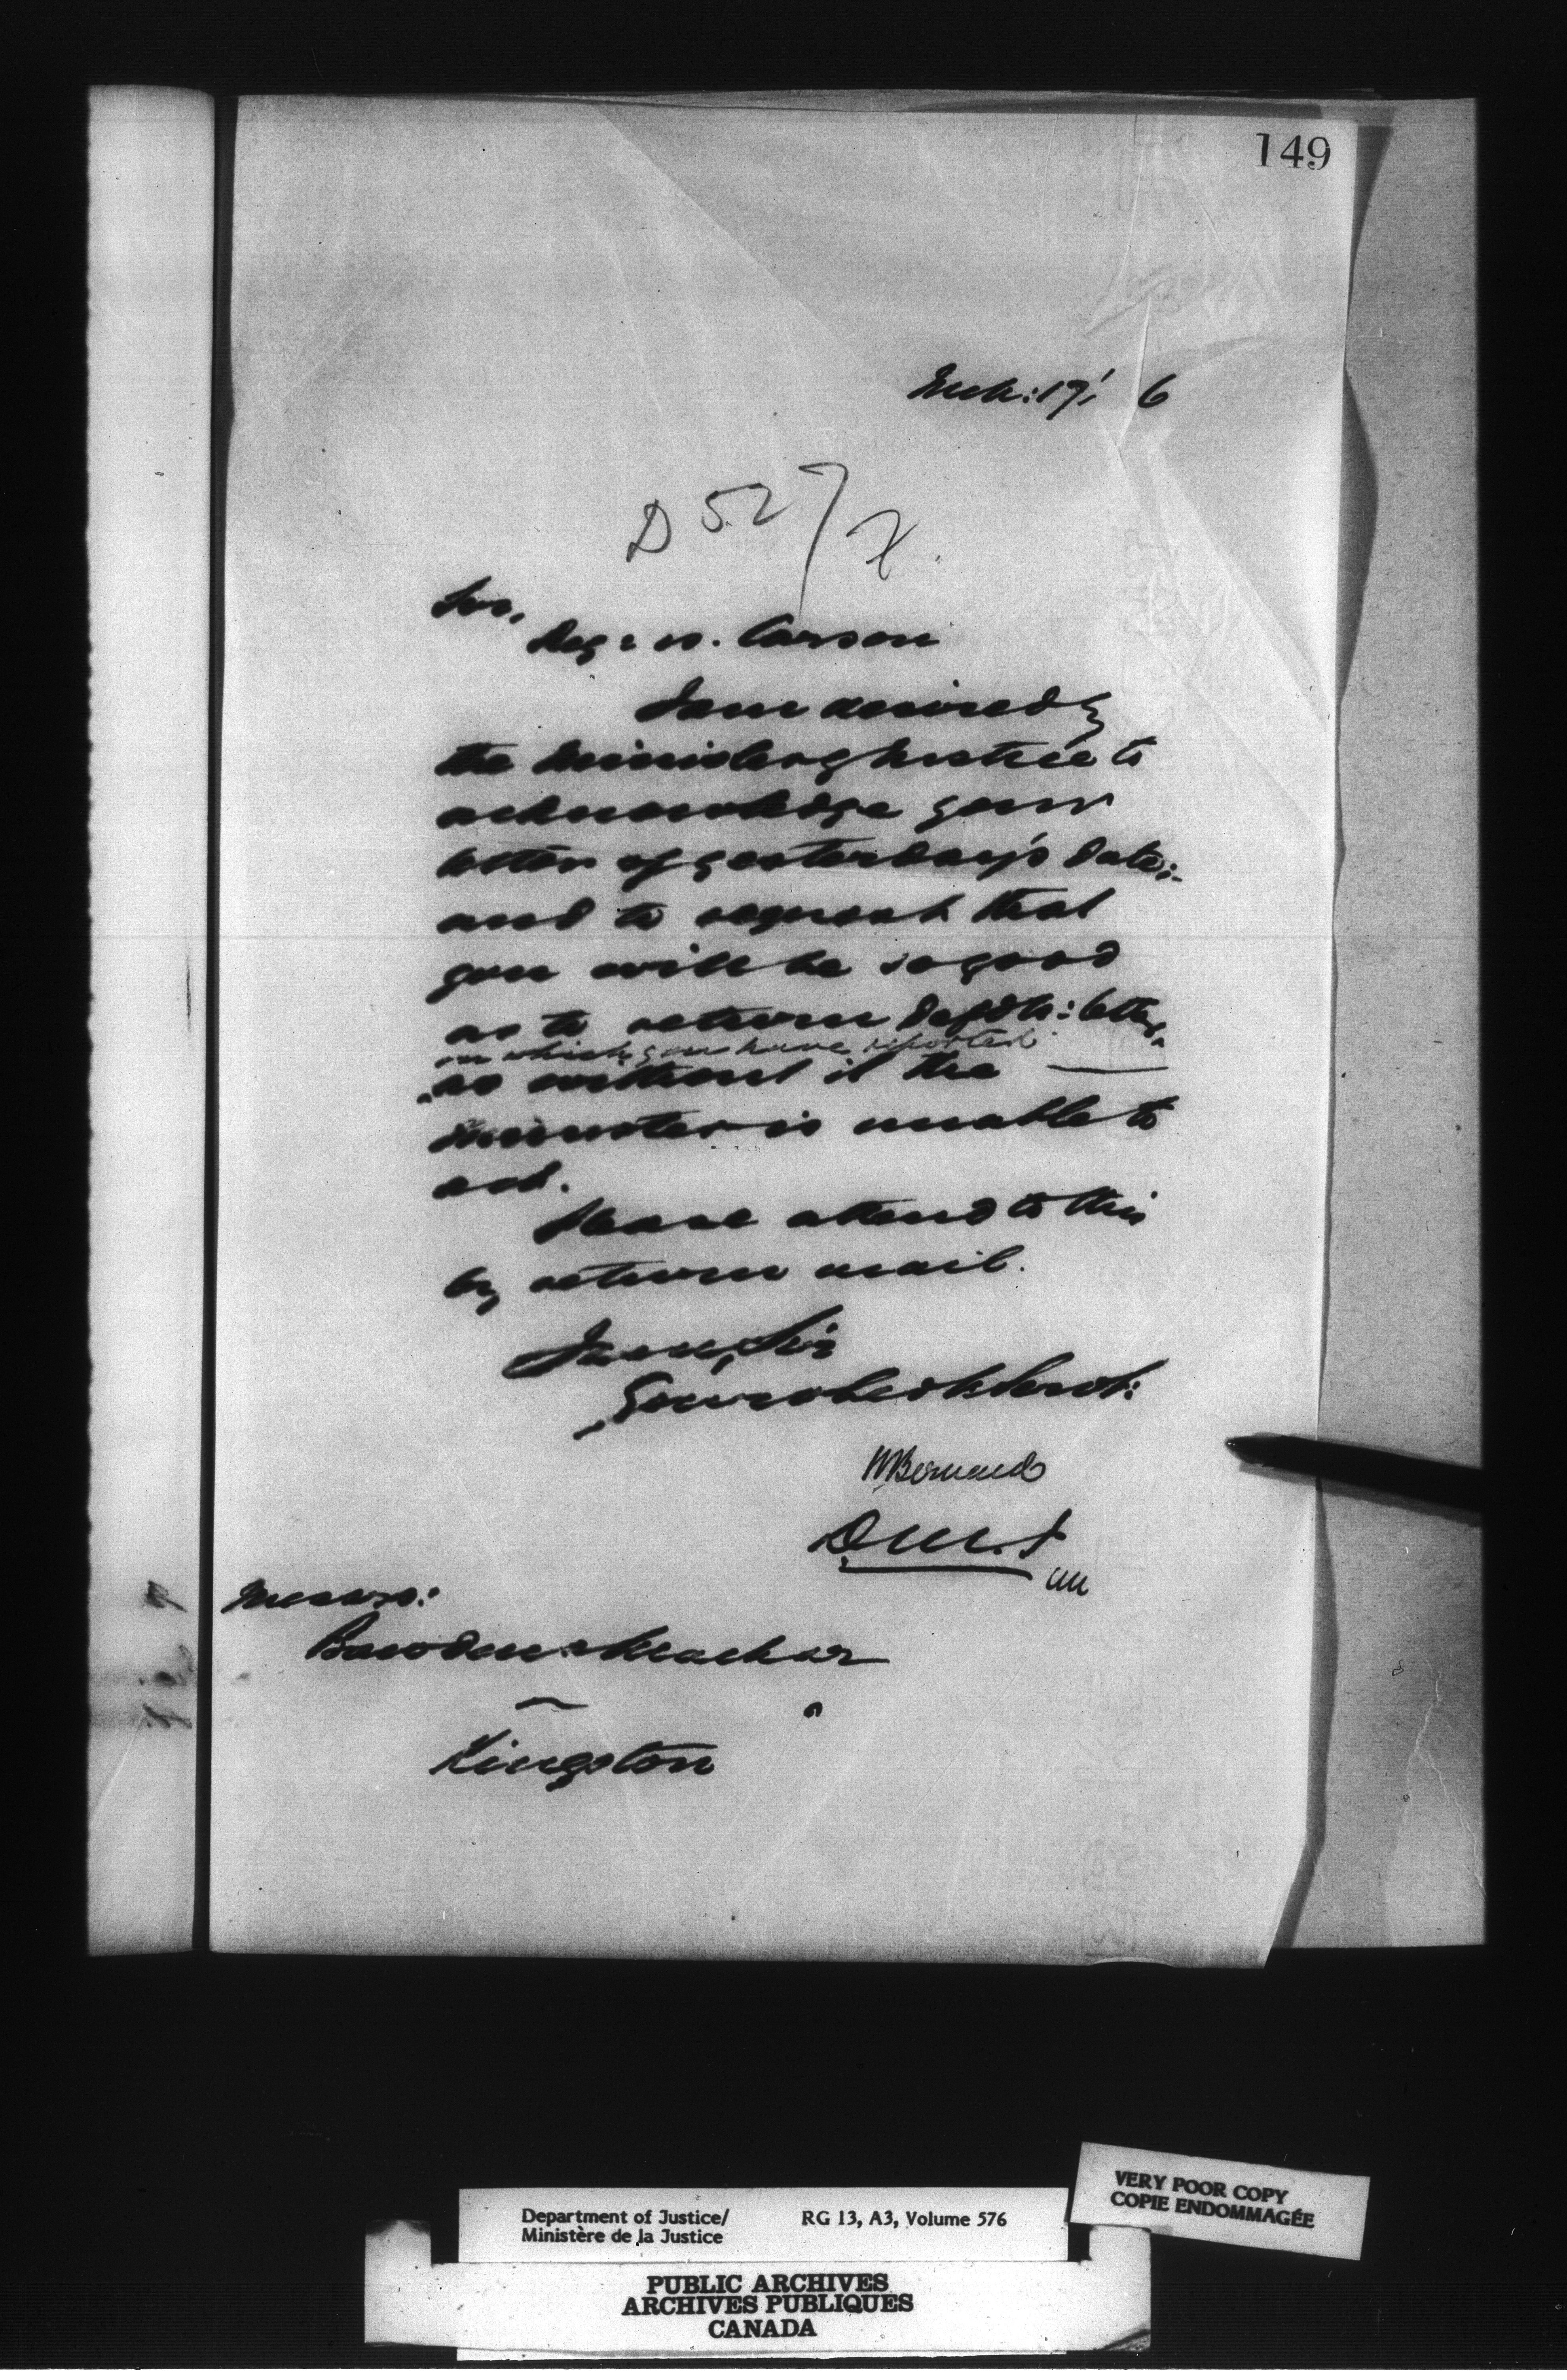 149
Mch: 17, 6
D 527/
Sir,
Reg: v. Carson
I am desired by
the Minister of Justice to
acknowledge your
letter of yesterday's date;-
and to request that
you will be so good
as to return Depth: letter,
on which you have reported
as without it the
minister is unable to
act.
Please attend to this
by return mail.
I am, Sir
Your obedt Servt:
HBernard
D.M.J
Messrs:
Bawden & Machar
Kingston
Department of Justice/ RG 13, A3, Volume 576
Ministère de la Justice
VERY POOR COPY
COPIE ENDOMMAGÉE
PUBLIC ARCHIVES
ARCHIVES PUBLIQUES
CANADA